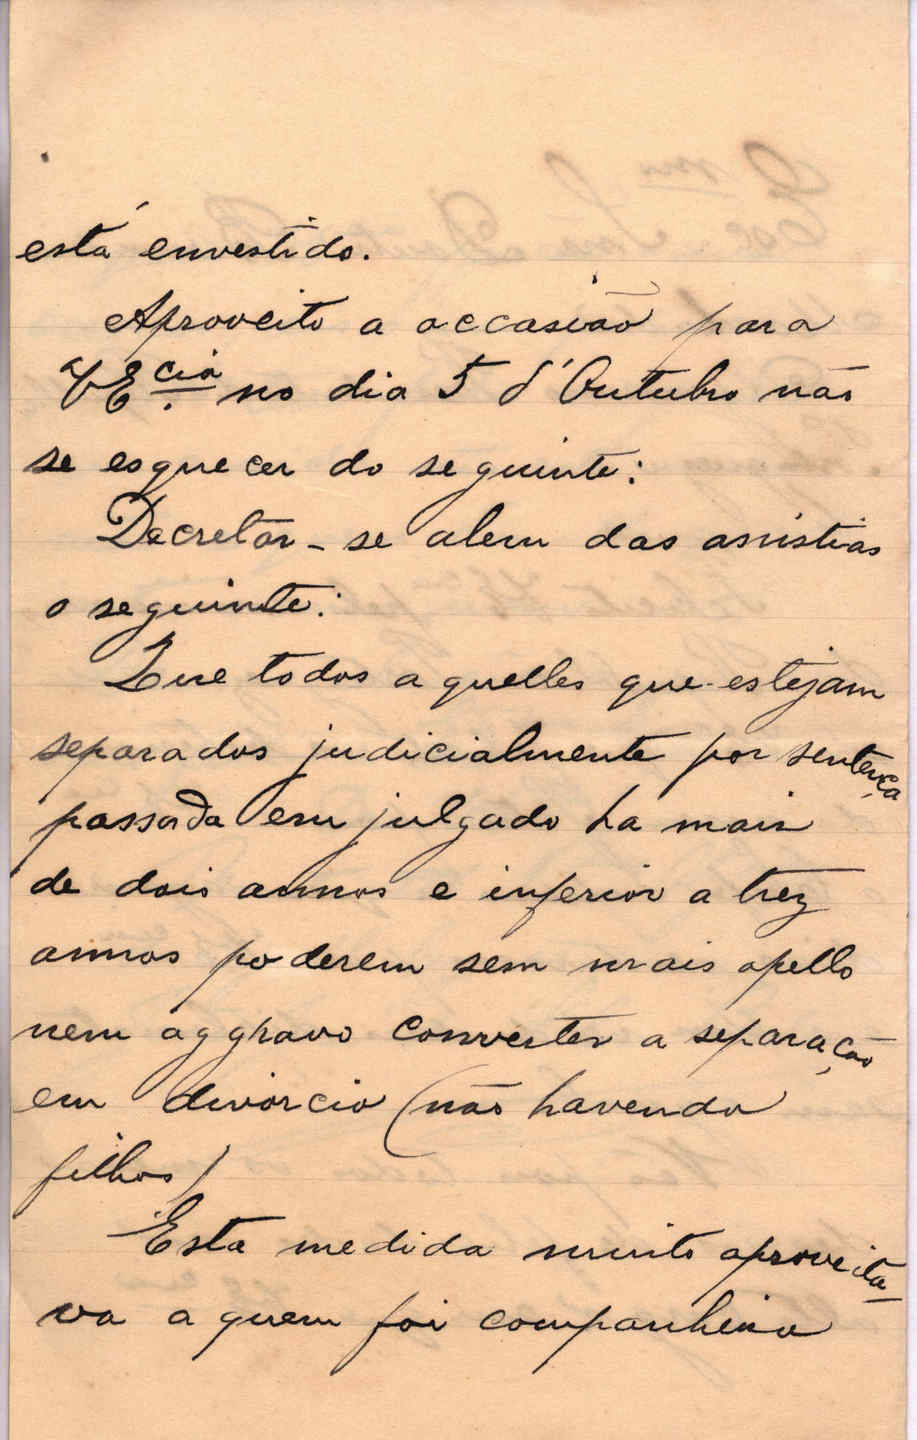 está envestido.
Aproveito a occasião para
V Ecia. no dia 5 d'Outubro não
se esquecer do seguinte:
Decretar-se alem das amistias
o seguinte:
Que todos aquelles que estejam
separados judicialmente por sentença
passada em julgado ha mais
de dois annos e inferior a trez
annos poderem sem mais apello
nem aggravo converter a separação
em divorcio (não havendo
filhos)
Esta medida muito aproveita-
va a quem foi companheiro